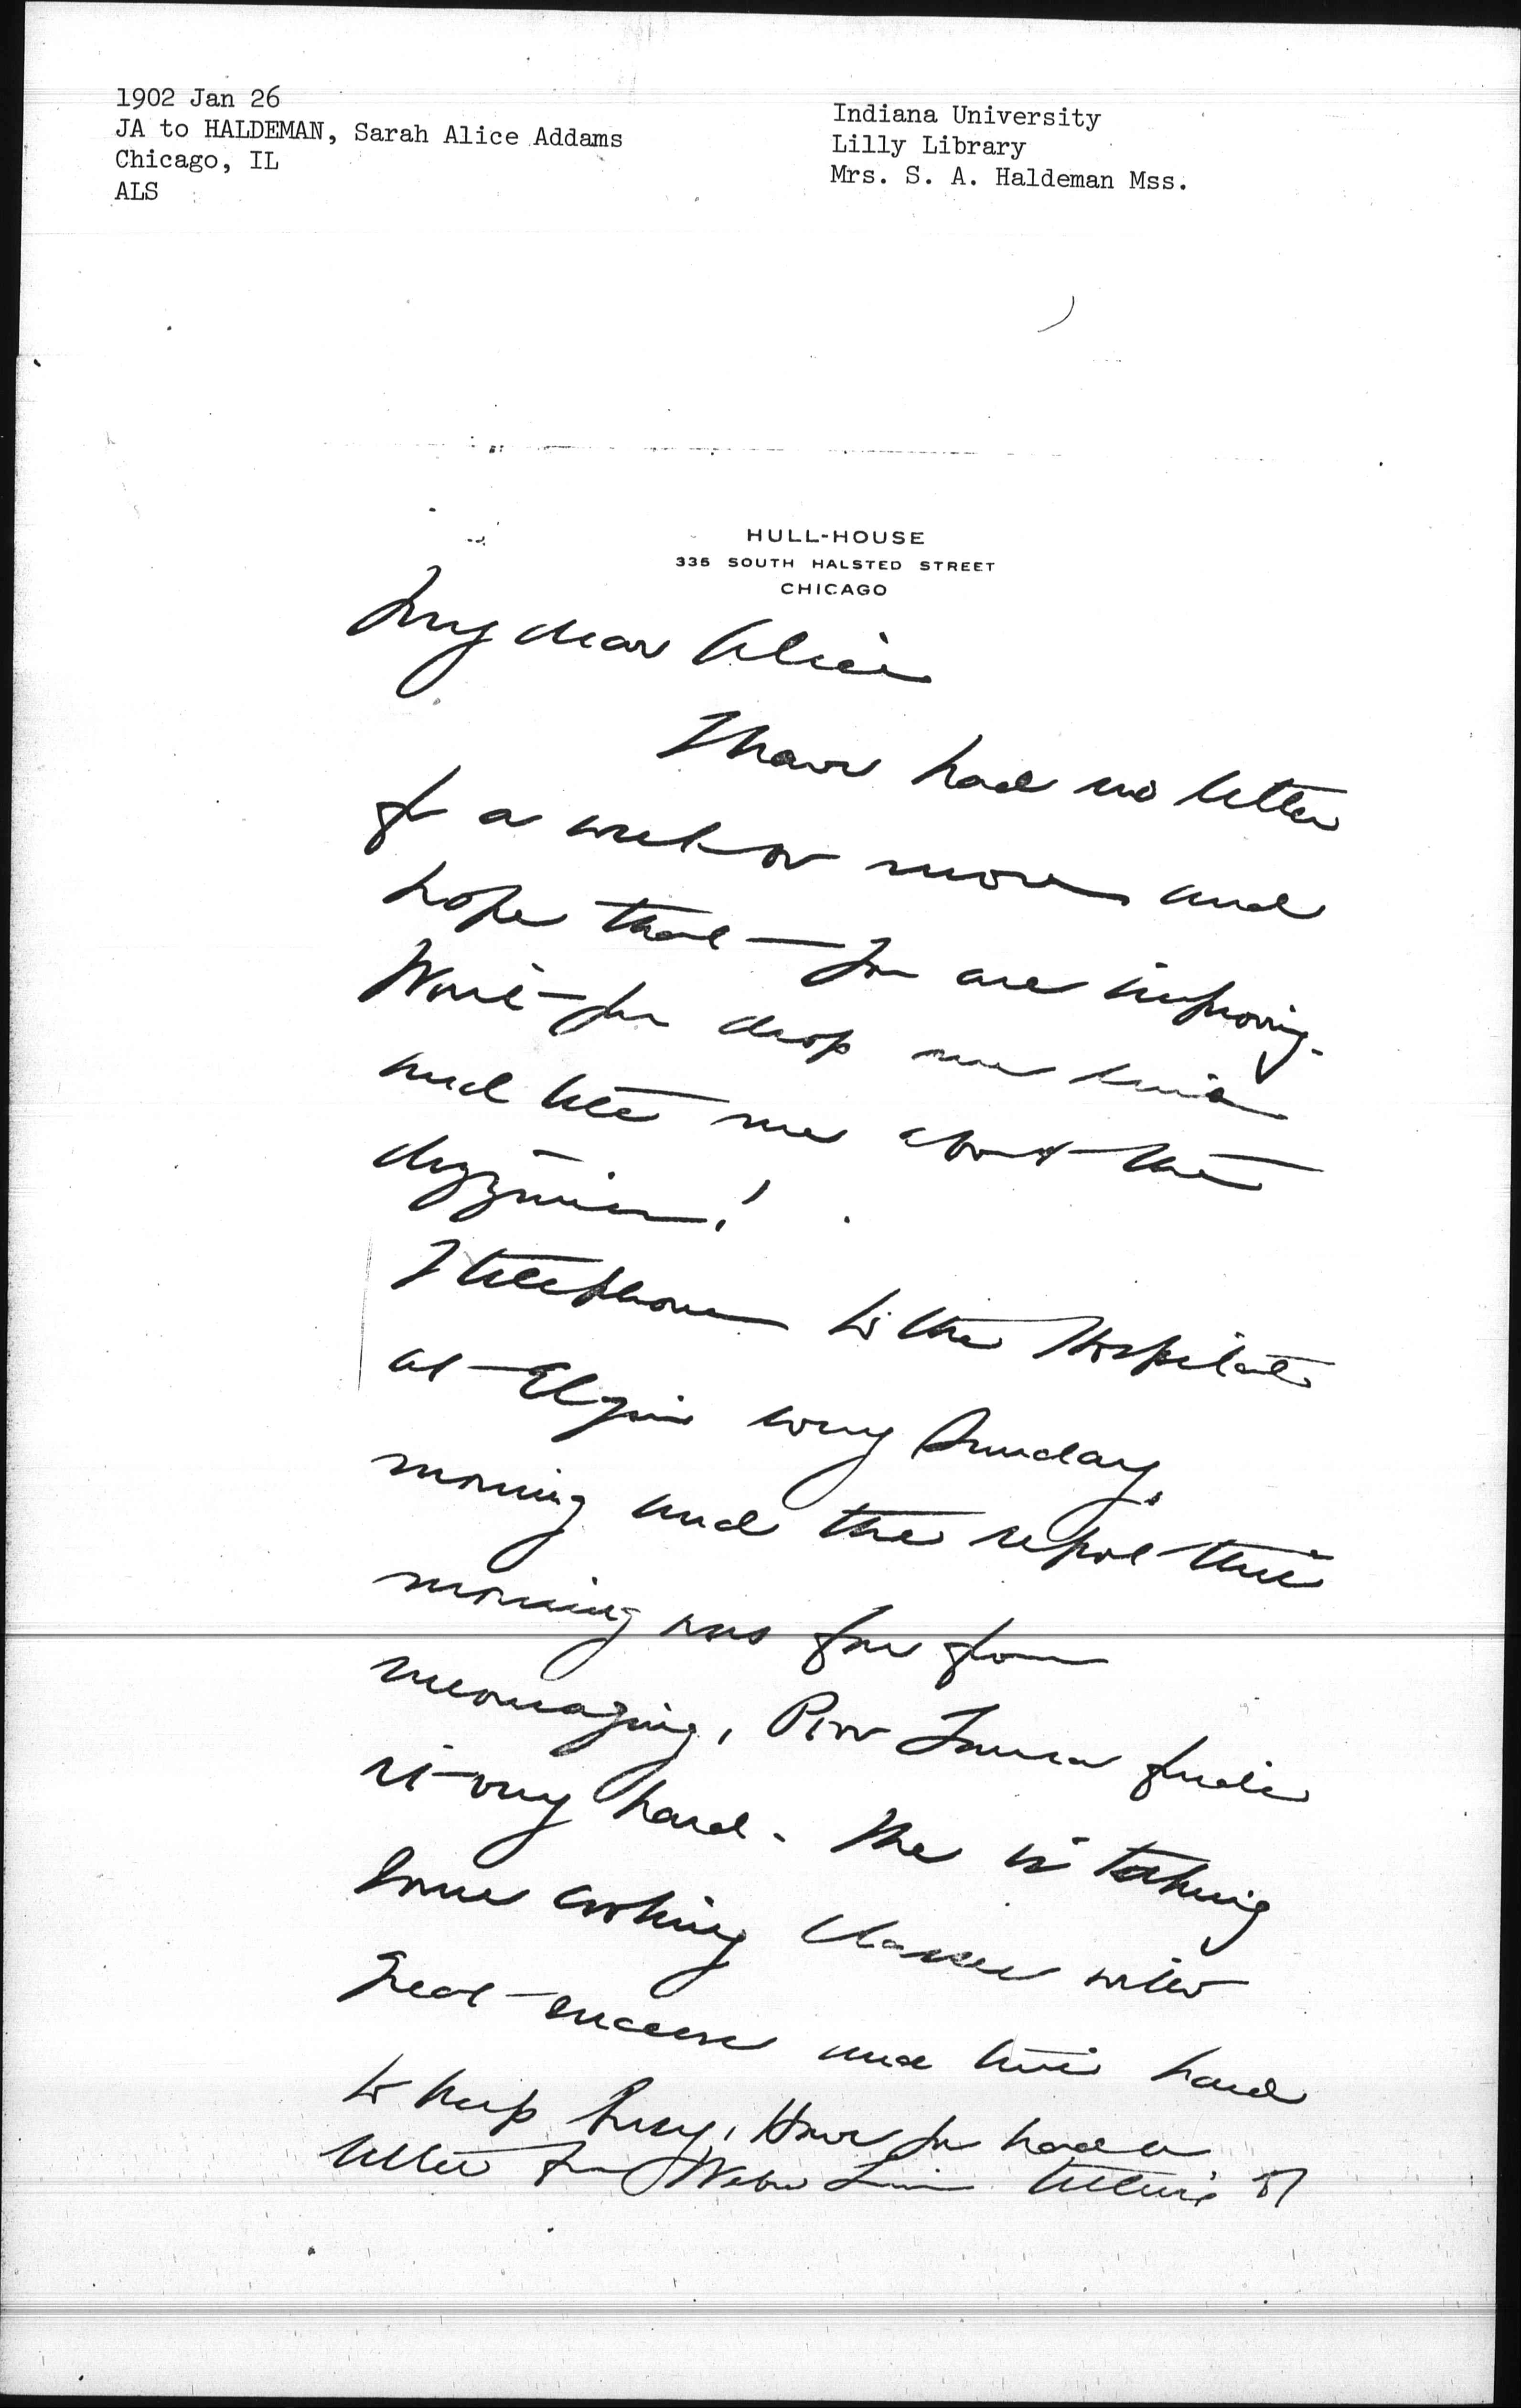 1902 Jan 26
JA to HALDEMAN, Sarah Alice Addams
Chicago, IL
ALS
Indiana University
Lilly Library
Mrs. S. A. Haldeman Mss.
HULL-HOUSE
335 SOUTH HALSTED STREET
CHICAGO
My dear Alice
I have had no letter
for a week or more and
hope that you are improving.
Won't you drop me a line
and tell me about the
dizziness!
I telephone to the Hospital
at Elgin every Sunday
morning and the report this
morning was far from
encouraging. Poor Laura finds
it very hard. She is taking
some cooking classes with
great success and tries hard
to keep busy. Have you had a
letter from Weber Linn telling of